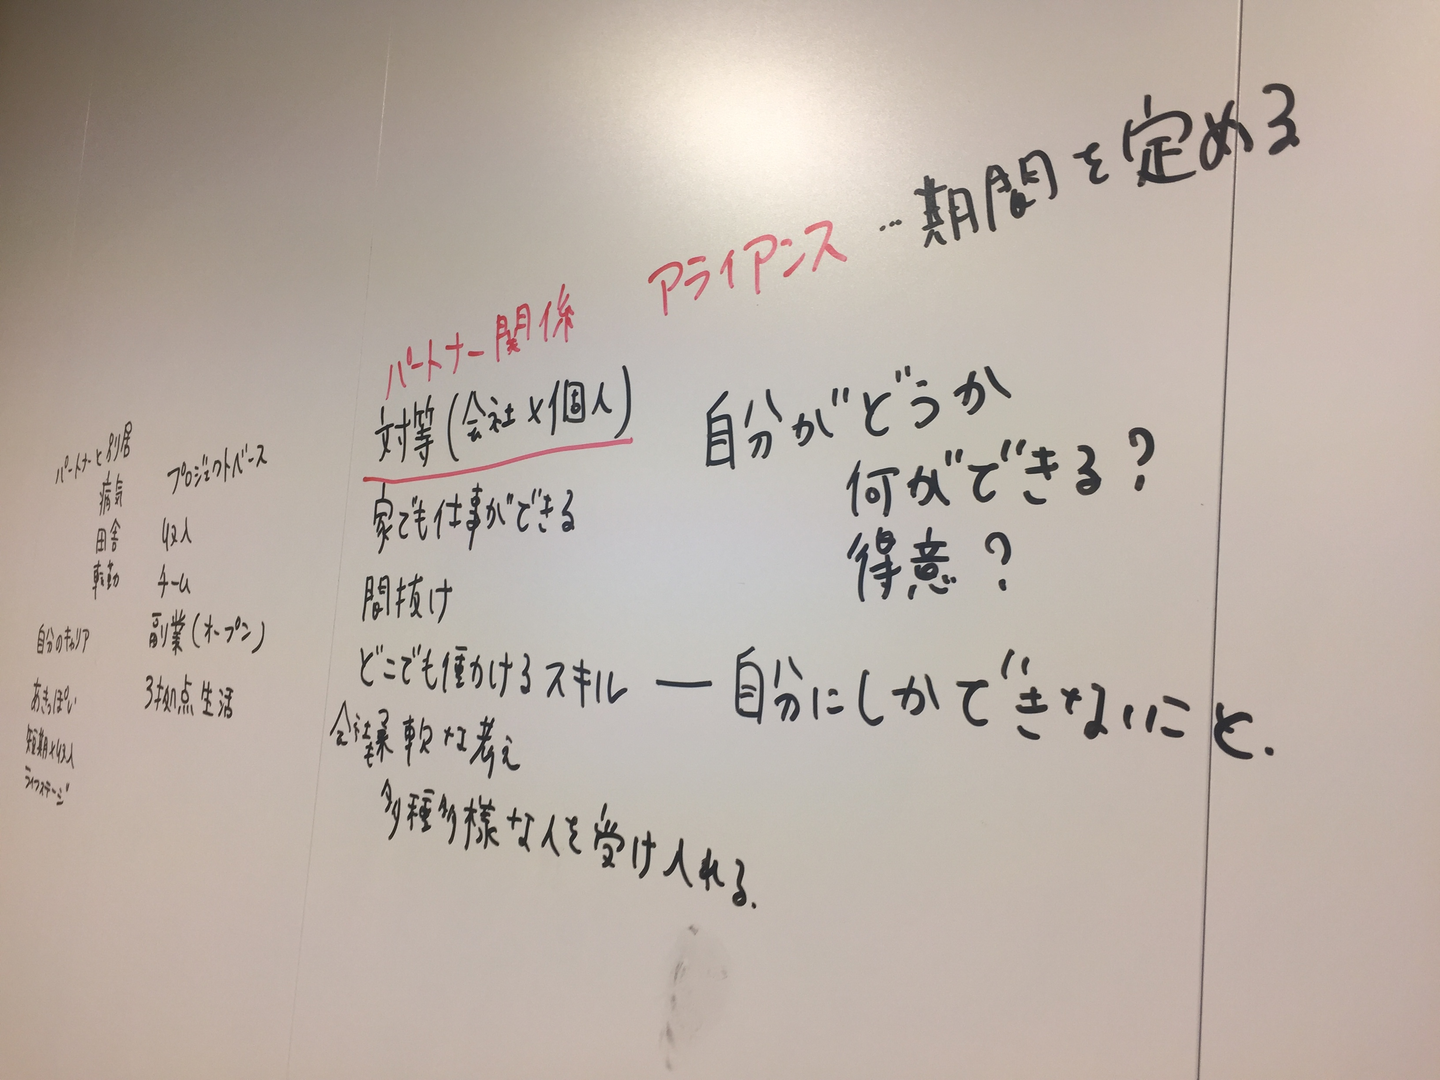 パートナーと別居
病気
田舎
転勤
自分のキャリア
あきっぽい
短期×収入
ライフステージ
プロジェクトベース
収入
チーム
副業(オープン)
3拠点生活
パートナー関係
対等(会社×個人)
家でも仕事ができる
間抜け
どこでも働かけるスキル ― 自分にしかできないこと.
会社も柔軟な考え
多種多様な人を受け入れる.
アライアンス …期間を定める
自分がどうか
何ができる?
得意?